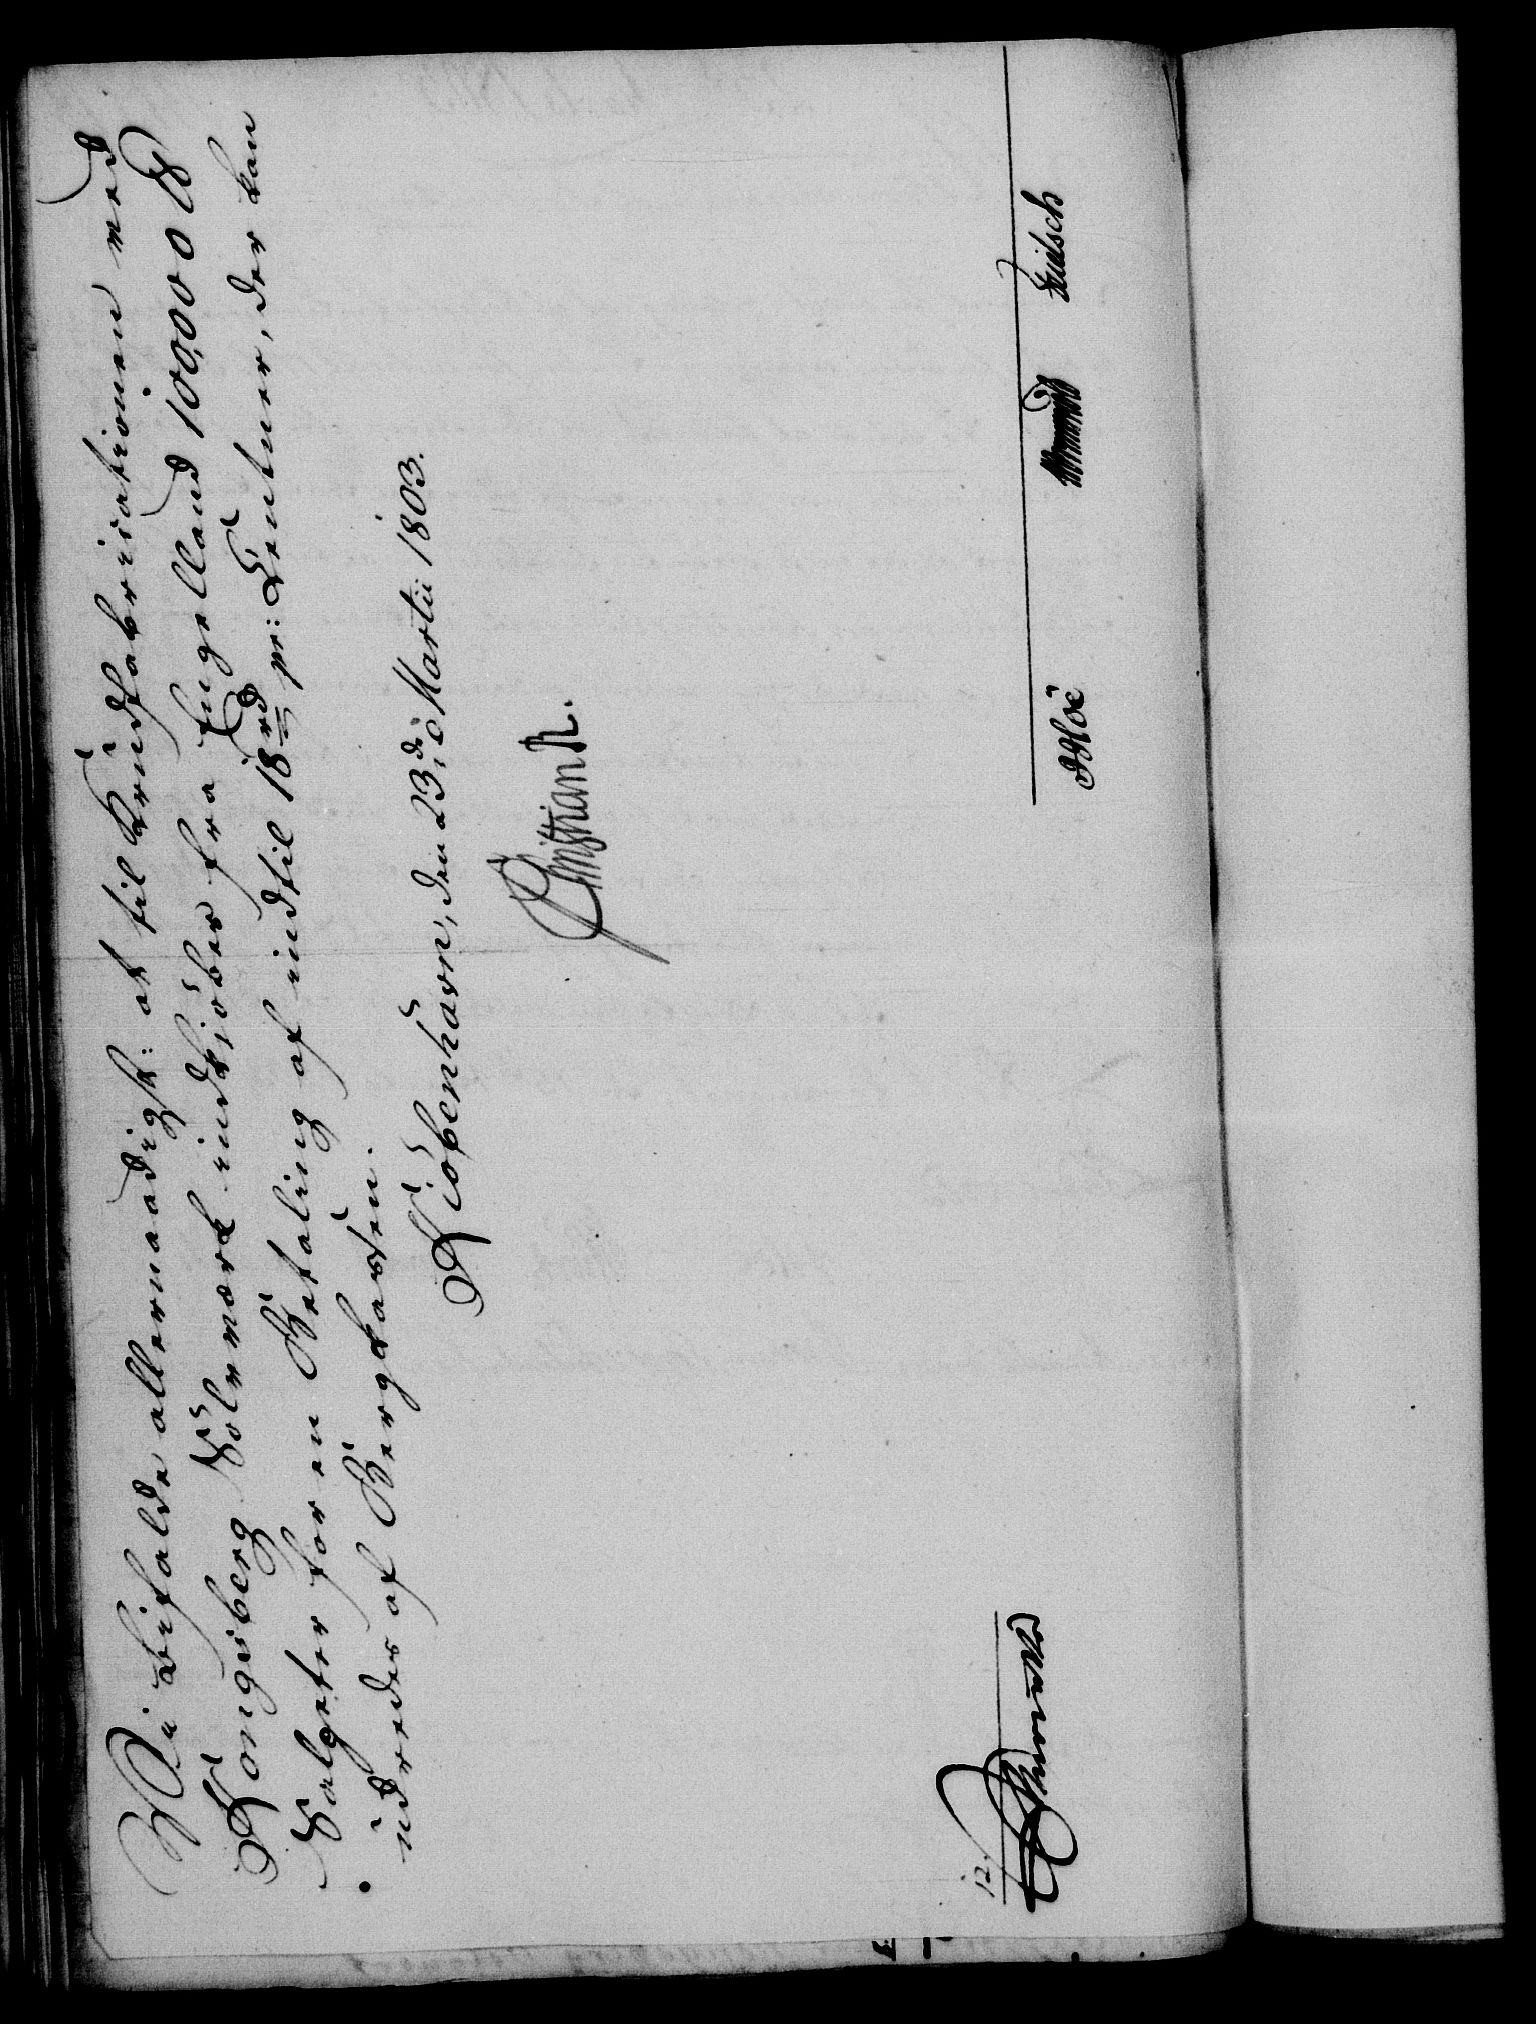 Vi bifalde allernaadigst: at til Krudfabricationen ved
Kongsberg Sölvværk indkjöbes fra Engelland 100,000 ℔
Salpeter for en Betaling af indtil 18 rd pr: Centner, der kan
udredes af Bergkassen.
Kiöbenhavn, den 23de Martii 1803.
Christian R.
12.
Knuth